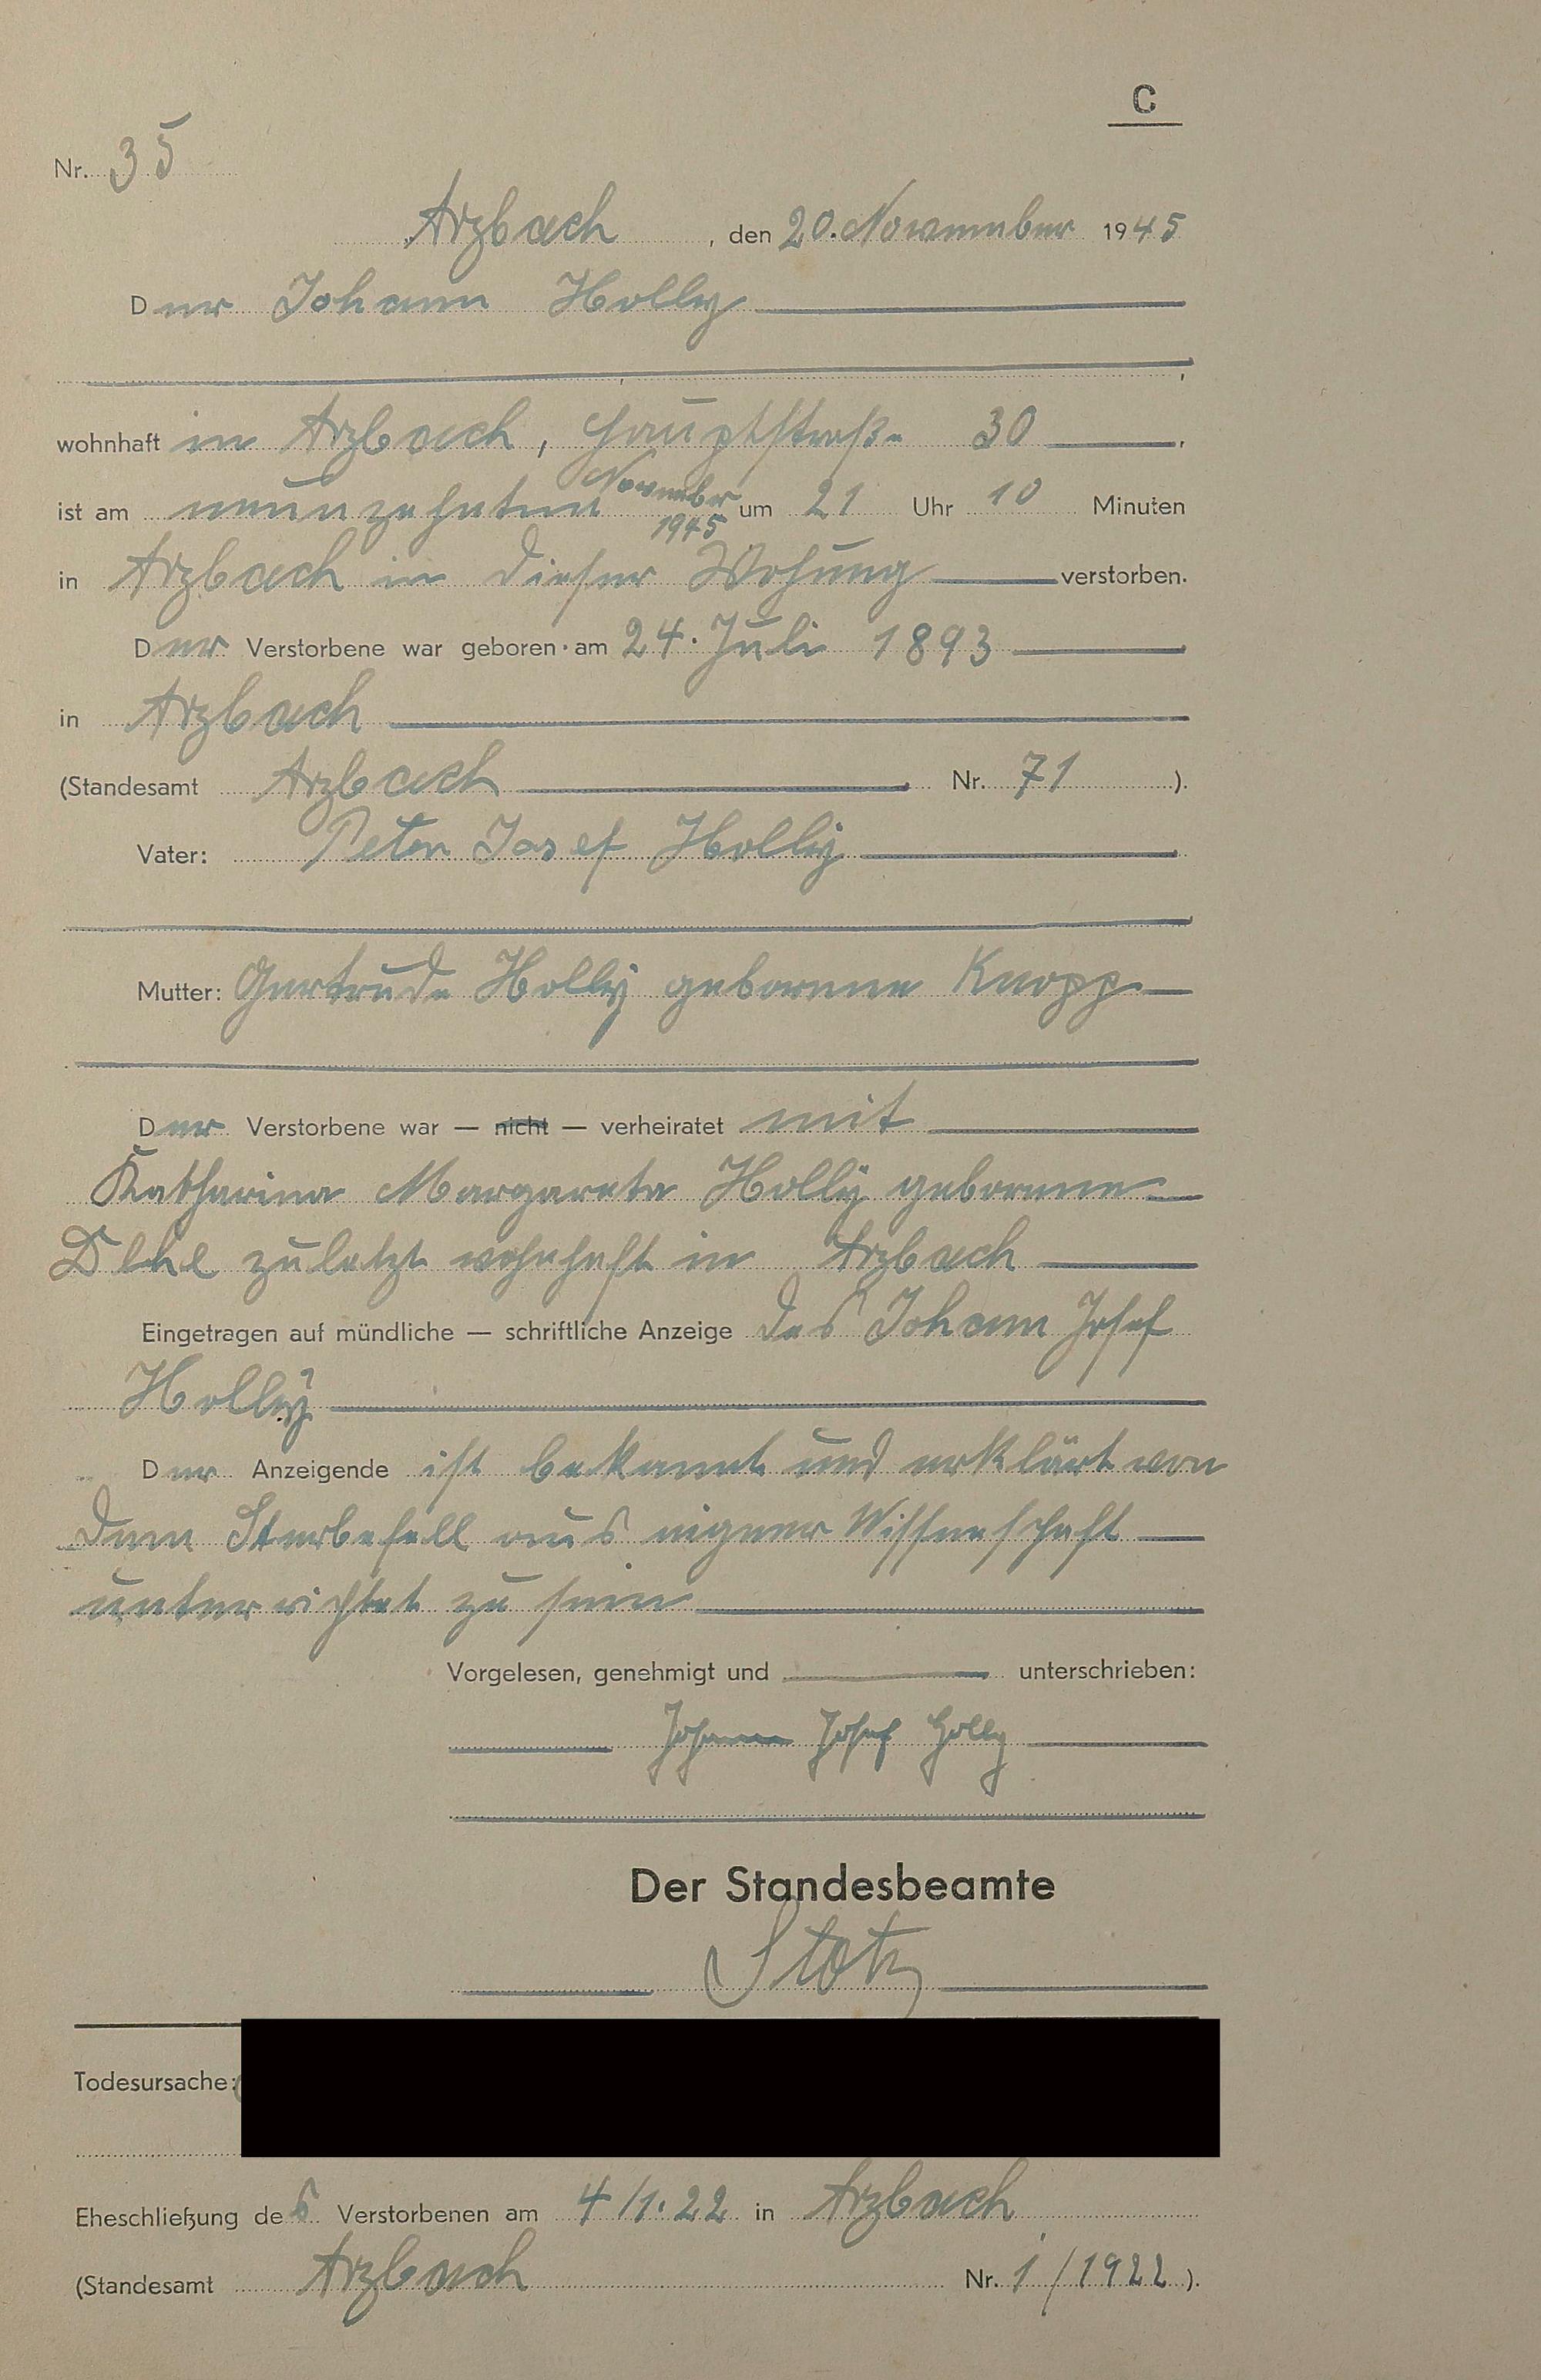 C
Nr. 35
Arzbach, den 20. November 1945
Der Johann Holly
wohnhaft in Arzbach, Hauptstraße 30,
ist am neunzehnten November 1945 um 21 Uhr 10 Minuten
in Arzbach in dieser Wohung verstorben.
Der Verstorbene war geboren am 24. Juli 1893
in Arzbach
(Standesamt Arzbach Nr. 71).
Vater: Peter Josef Holly
Mutter: Gertrude Holly geborene Knopp
Der Verstorbene war — nicht — verheiratet mit
Katharina Margareta Holly geborene
zuletzt wohnhaft in Arzbach
Eingetragen auf mündliche — schriftliche Anzeige des Johann Josef
Holly
Der Anzeigende ist bekannt und erklärt von
dem Sterbefall aus eigener Wissenschaft
unterrichtet zu sein
Vorgelesen, genehmigt und unterschrieben:
Johann Josef Holly
Der Standesbeamte
Stotz
Todesursache:
Eheschließung des Verstorbenen am 4/1.22 in Arzbach
(Standesamt Arzbach Nr. 1/1922).